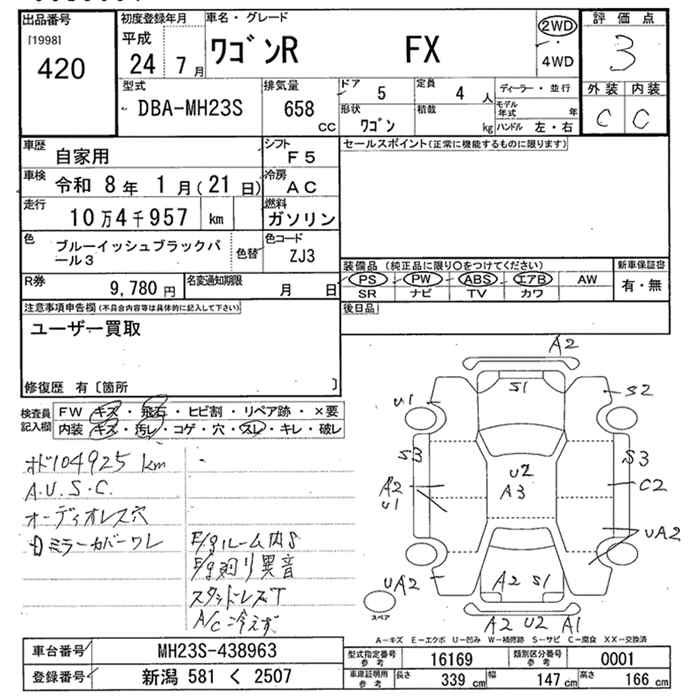 出品番号
[1998]
420
初度登録年月
平成
24 7月
車名・グレード
ワゴンR FX
2WD
4WD
評価点
3
外装 内装
C C
型式
DBA-MH23S
排気量
658 cc
ドア 5
定員 4 人
形状 ワゴン
積載 kg
ディーラー・並行
モデル年式 年
ハンドル 左・右
車歴
自家用
シフト
F5
車検
令和 8年 1月(21日)
冷房
AC
走行
10万4千957 km
燃料
ガソリン
色
ブルーイッシュブラックパール3
色替
色コード
ZJ3
R券
9,780 円
名変通知期限
月 日
セールスポイント(正常に機能するものに限ります)
装備品 (純正品に限り○をつけてください)
PS PW ABS エアB AW
SR ナビ TV カワ
新車保証書
有・無
後日品
注意事項申告欄(不具合内容等は具体的に記入して下さい)
ユーザー買取
修復歴 有 〔箇所 〕
検査員記入欄
FW キズ・飛石・ヒビ割・リペア跡・×要
内装 キズ・汚レ・コゲ・穴・スレ・キレ・破レ
オド104925 km
A.U.S.C.
オーディオレス穴
ミラーカバーワレ
F/gルーム内S
F/g廻リ異音
スタッドレスT
A/C冷えず
A2
S1
U1
S2
S3
S3
U2
A3
A2
U1
C2
UA2
UA2
A2 S1
A2 U2 A1
スペア
A-キズ E-エクボ U-凹み W-補修跡 S-サビ C-腐食 XX-交換済
車台番号
MH23S-438963
登録番号
新潟 581 く 2507
型式指定番号 参考
16169
類別区分番号 参考
0001
車庫証明用 参考
長さ 339 cm
幅 147 cm
高さ 166 cm